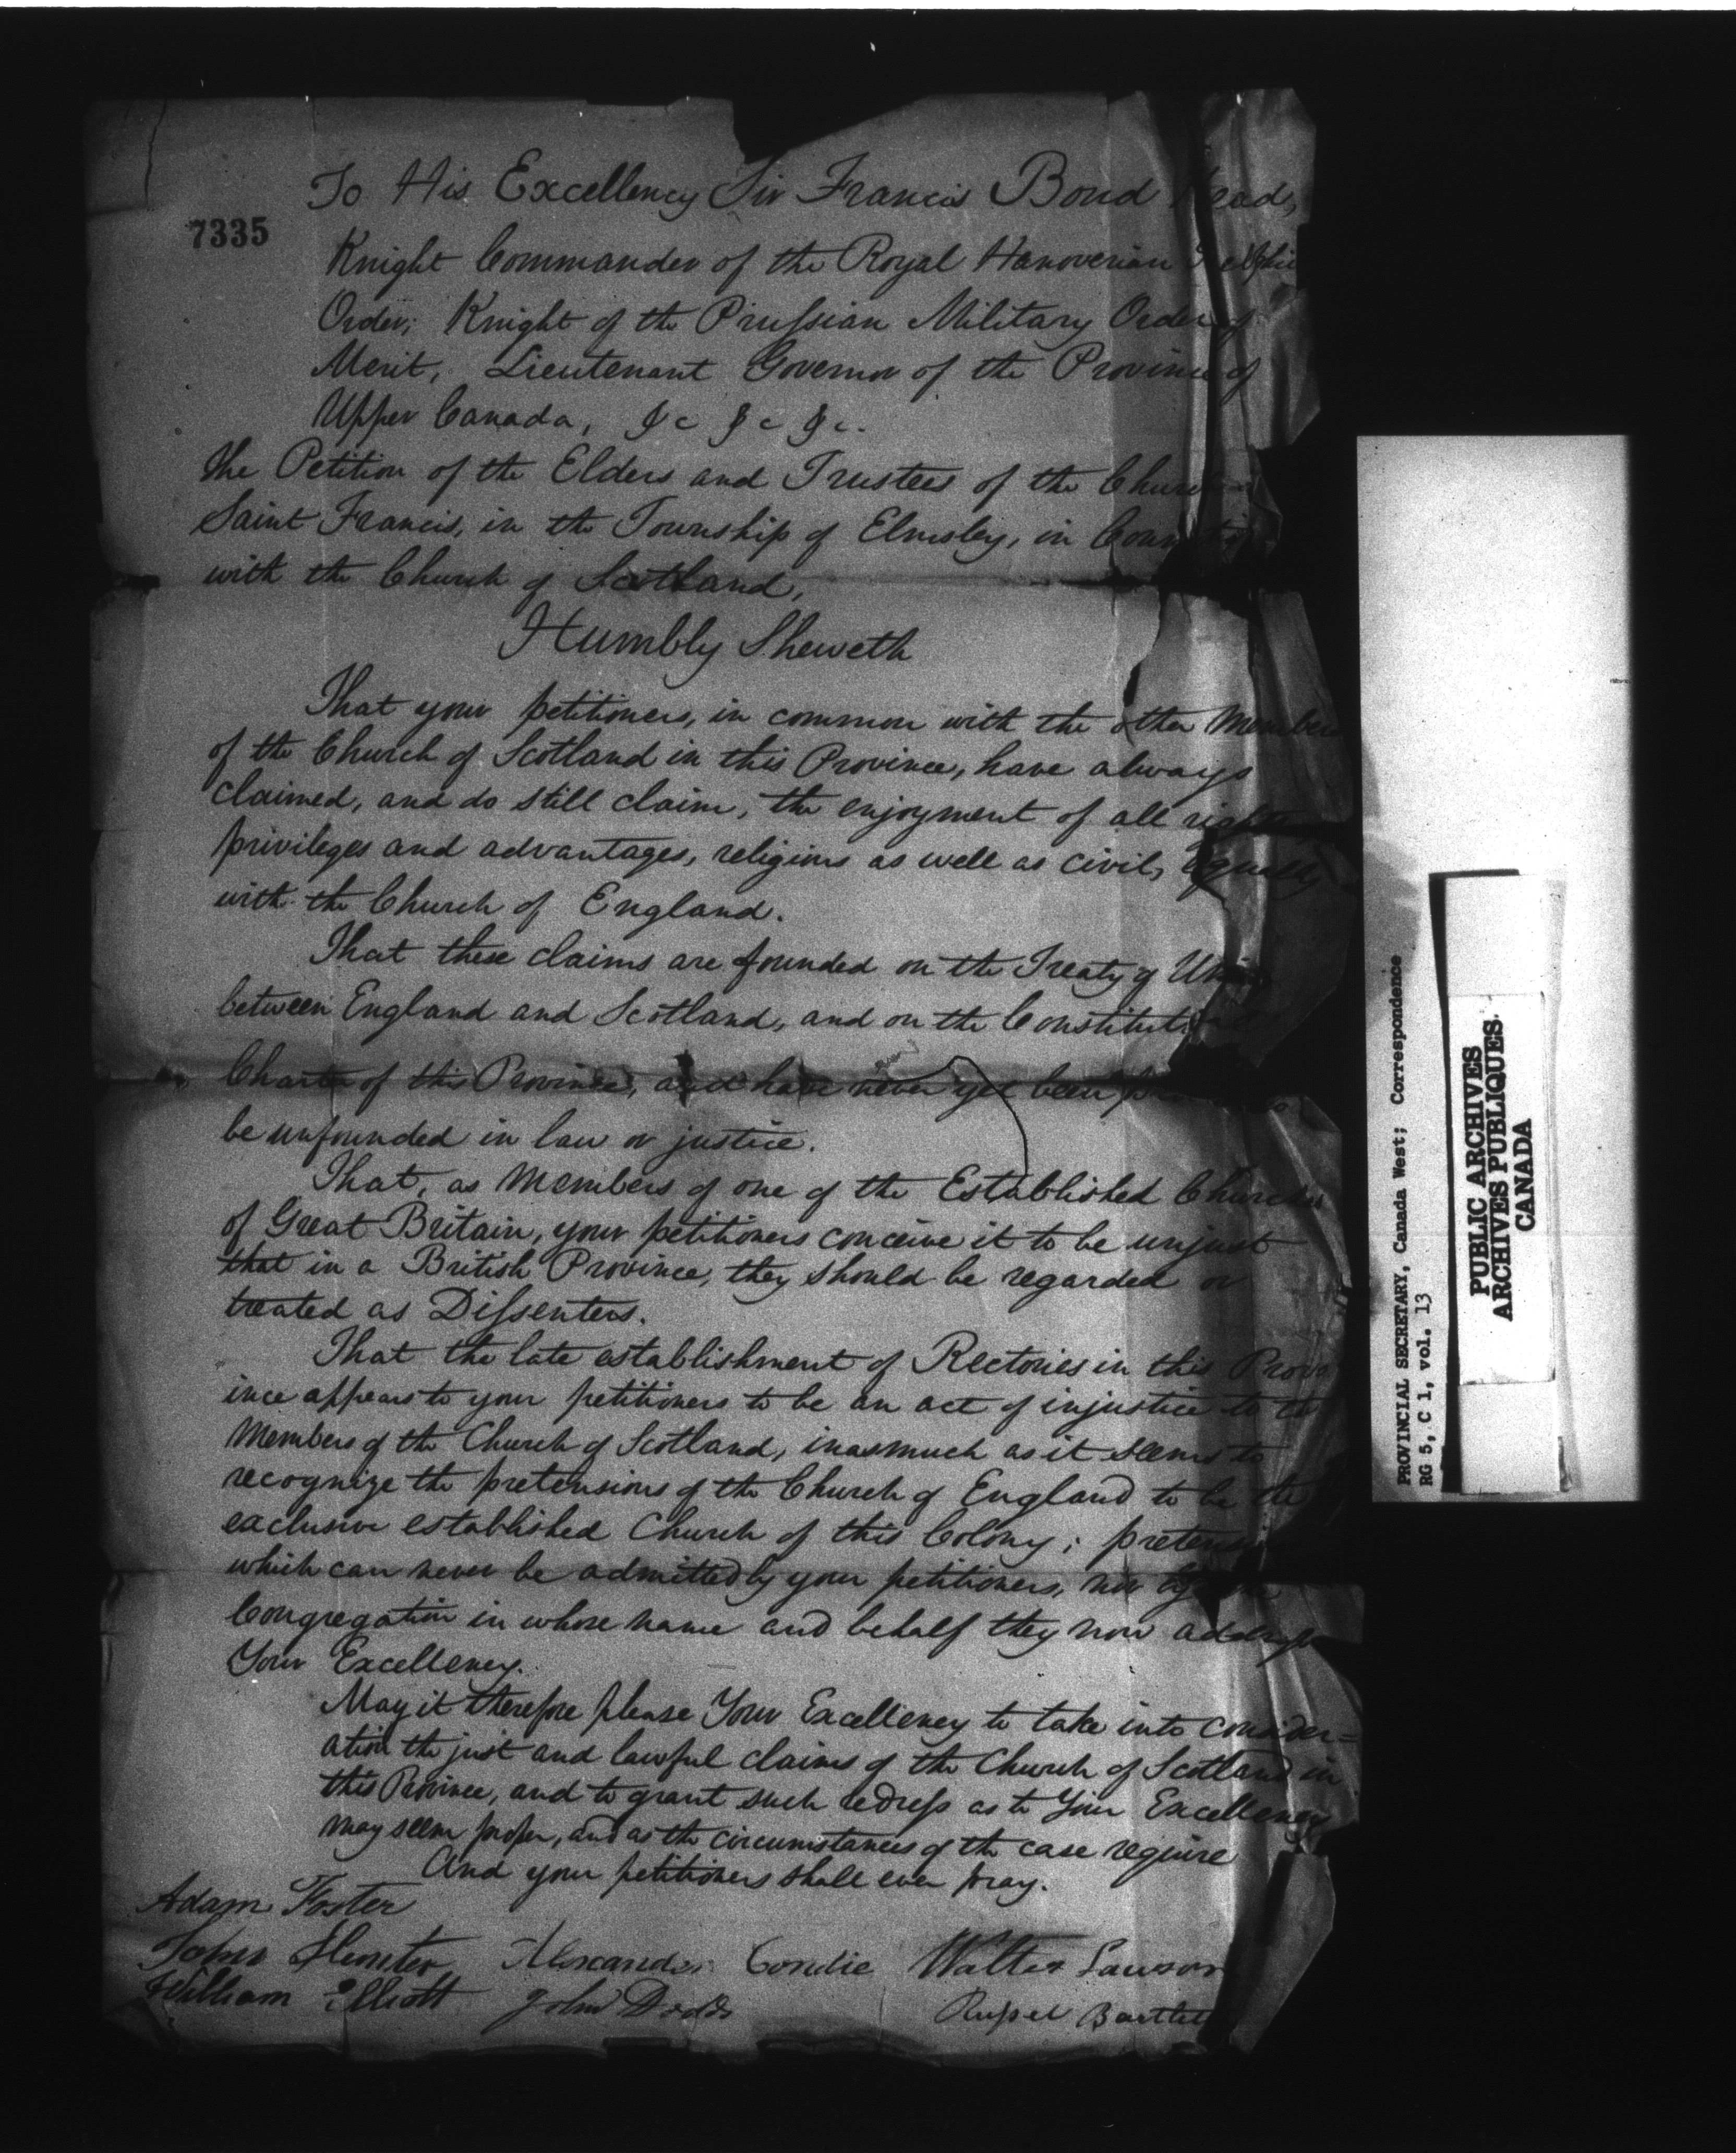 7335
To His Excellency Sir Francis Bond Head,
Knight Commander of the Royal Hanoverian Guelphic
Order; Knight of the Prussian Military Order of
Merit, Lieutenant Governor of the Province of
Upper Canada, &c &c &c.
The Petition of the Elders and Trustees of the Church
Saint Francis, in the Township of Elmsley, in Connection
with the Church of Scotland,
Humbly Sheweth
That your petitioners, in common with the other Members
of the Church of Scotland in this Province, have always
claimed, and do still claim, the enjoyment of all rights
privileges and advantages, religious as well as civil, equally
with the Church of England.
That these claims are founded on the Treaty of Union
between England and Scotland, and on the Constitutional
Charter of this Province, and have never yet been to
be unfounded in law or justice.
That, as Members of one of the Established Churches
of Great Britain, your petitioners conceive it to be unjust
that in a British Province, they should be regarded or
treated as Dissenters.
That the late establishment of Rectories in this Prov
ince appears to your petitioners to be an act of injustice to the
Members of the Church of Scotland, inasmuch as it seems to
recognize the pretensions of the Church of England to be the
exclusive established Church of this Colony; pretensions
which can never be admitted by your petitioners, nor by the
Congregation in whose name and behalf they now address
Your Excellency.
May it therefore please Your Excellency to take into consider=
ation the just and lawful claims of the Church of Scotland in
this Province, and to grant such redress as to Your Excellency
may seem proper, and as the circumstances of the case require
And your petitioners shall ever pray.
Adam Foster
John Hunter Alexander Condie Walter Lawson
William Elliott John Dodds Russel Bartlet
PROVINCIAL SECRETARY, Canada West; Correspondence
RG 5, C 1, vol. 13
PUBLIC ARCHIVES
ARCHIVES PUBLIQUES
CANADA